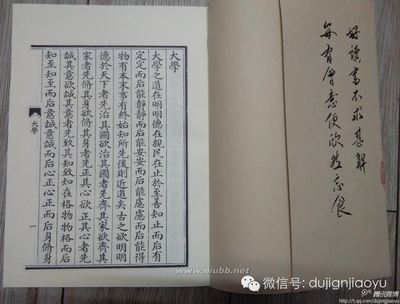 好讀書不求甚解
每有會意便欣然忘食
大學
大學之道在明明德在親民在止於至善知止而后有
定定而后能靜靜而后能安安而后能慮慮而后能得
物有本末事有終始知所先後則近道矣古之欲明明
德於天下者先治其國欲治其國者先齊其家欲齊其
家者先脩其身欲脩其身者先正其心欲正其心者先
誠其意欲誠其意者先致其知致知在格物物格而后
知至知至而后意誠意誠而后心正心正而后身脩身
大學
一
www.niubb.net
微信号: dujignjiaoyu
腾讯微博
http://t.qq.com/dujignjiaoyu